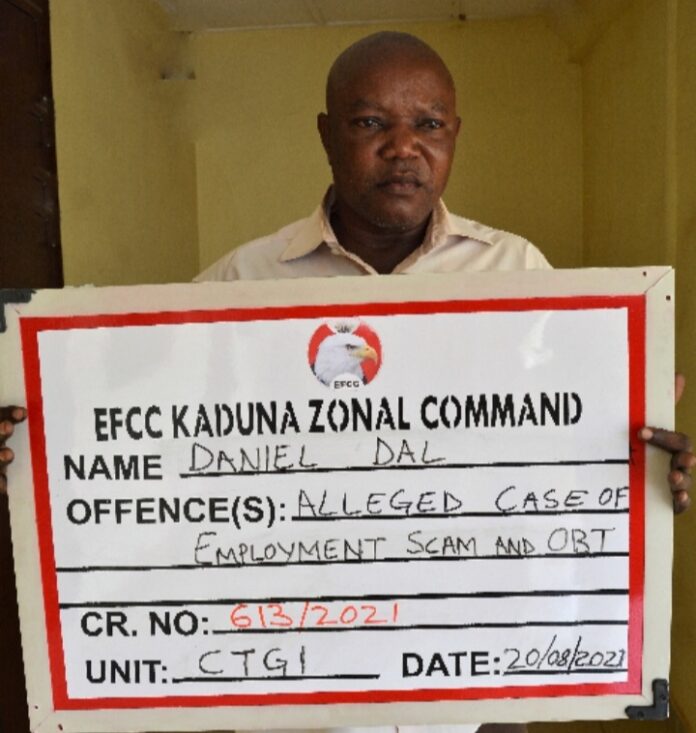 EFCC
EFCC KADUNA ZONAL COMMAND
NAME DANIEL DAL
OFFENCE(S): ALLEGED CASE OF
EMPLOYMENT SCAM AND OBT
CR. NO: 613/2021
UNIT: CTGI DATE: 20/08/2021